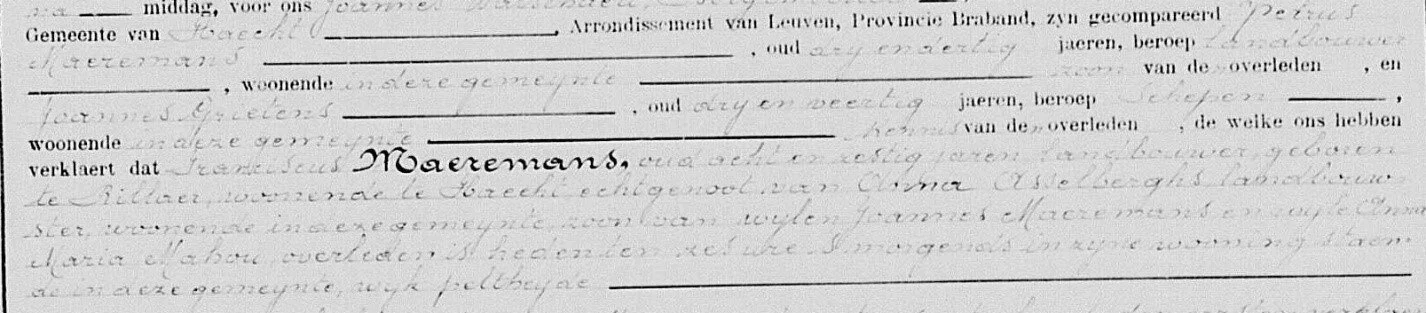 na middag, voor ons Joannes
Gemeente van Haecht, Arrondissement van Leuven, Provincie Braband, zyn gecompareerd Petrus
Maeremans, oud dry en dertig jaeren, beroep landbouwer
, woonende in deze gemeynte zoon van de overleden , en
Joannes Grietens, oud dry en veertig jaeren, beroep Schepen ,
woonende in deze gemeynte kennis van de overleden , de welke ons hebben
verklaert dat Franciscus Maeremans, oud acht en zestig jaren, landbouwer, geboren
te Rillaer, wonende te Haecht echtgenoot van Anna Asselberghs landbouw-
ster, wonende in deze gemeynte, zoon van wylen Joannes Maeremans en wyle Anna
Maria Mahou, overleden is heden ten zes ure s'morgends in zyne wooning staen-
de in deze gemeynte, wyk peltheyde